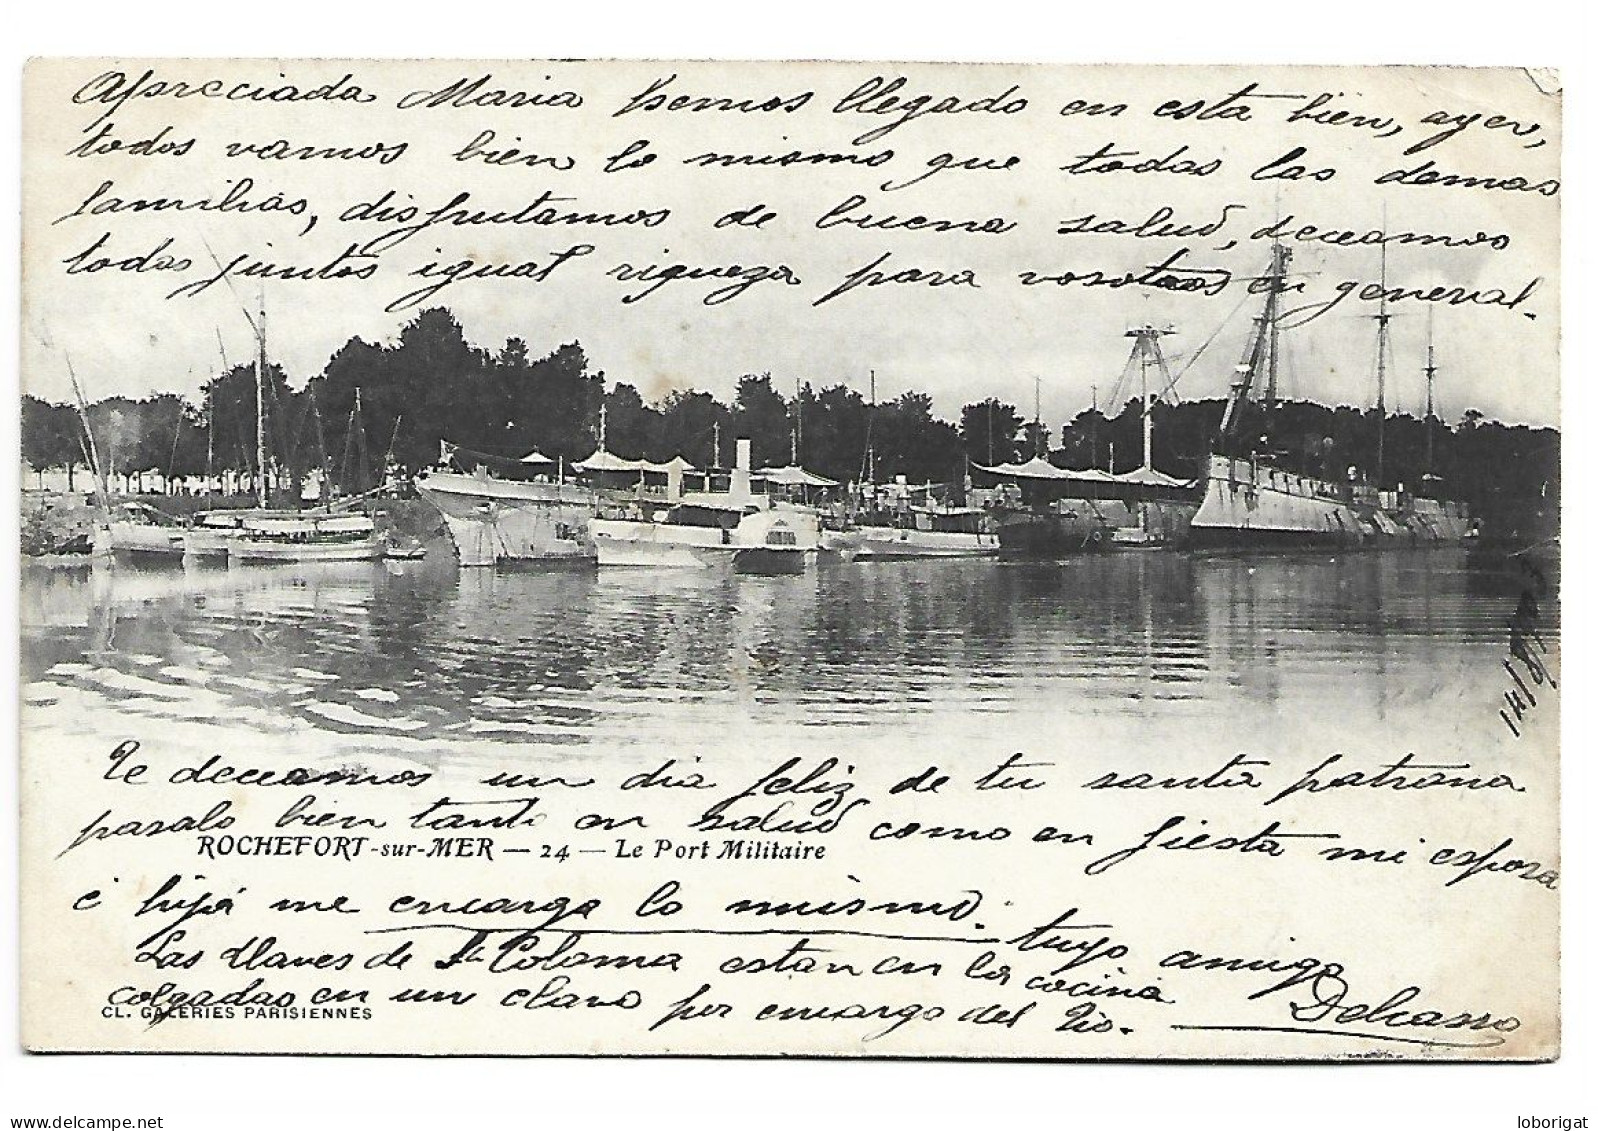 Apreciada Maria hemos llegado en esta bien, ayer,
todos vamos bien lo mismo que todas las demas
familias, disfrutamos de buena salud, deceamos
todas juntos igual riqueza para vosotros en general.
14/8/03
Te deceamos un dia feliz de tu santa patrona
pasalo bien tanto en salud como en fiesta mi esposa
ROCHEFORT-sur-MER — 24 — Le Port Militaire
é hija me encarga lo mismo.
tuyo amigo
Las llaves de Sta Coloma estan en la cocina
colgadas en un clavo por encargo del Tio.
Delcasso
CL. GALERIES PARISIENNES
delcampe.net
loborigat